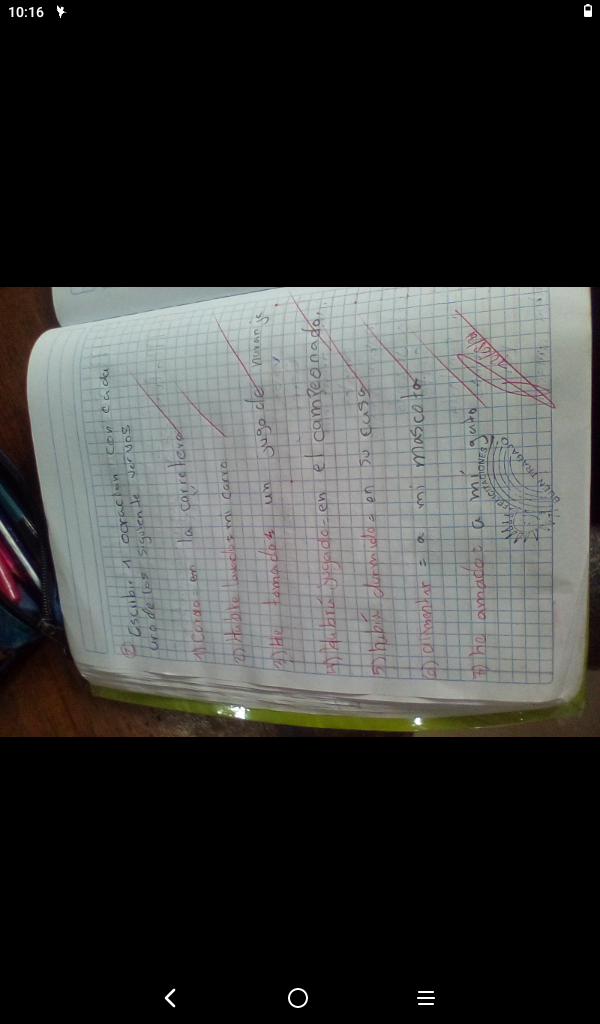 10:16
② Escribir 1 ocracion con cada
una de los siguiente verbos
1) Corro = en la carretera
2) mi carro
3) He tomado = un jugo de naranja
4) Habría jugado = en el campeonado.
5) había dormido = en su casa
6) alimentar = a mi mascota
7) he amado = a mi gato
FELICITACIONES
BUEN TRABAJO